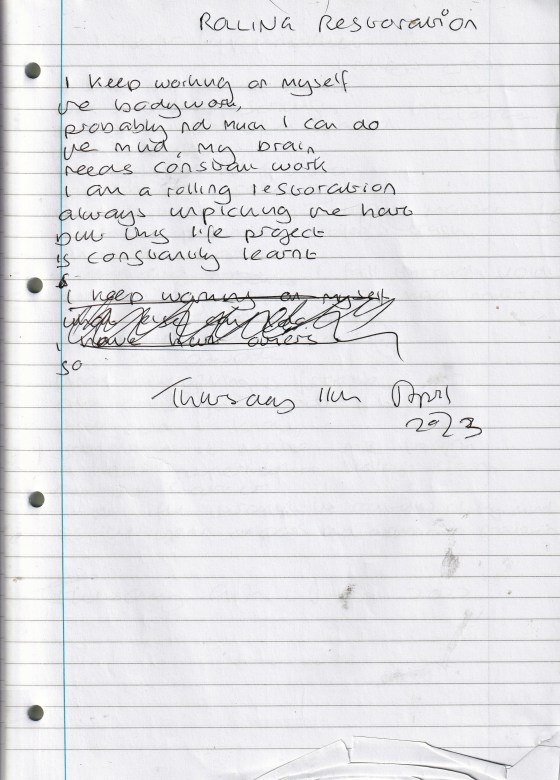 ROLLING Restoration
I keep working on myself
the bodywork,
probably not much I can do
the mind, my brain
needs constant work
I am a rolling restoration
always unpicking the hard
but this life project
is constantly learnt
I keep working on myself
I have others
so
Thursday 11th April
2023